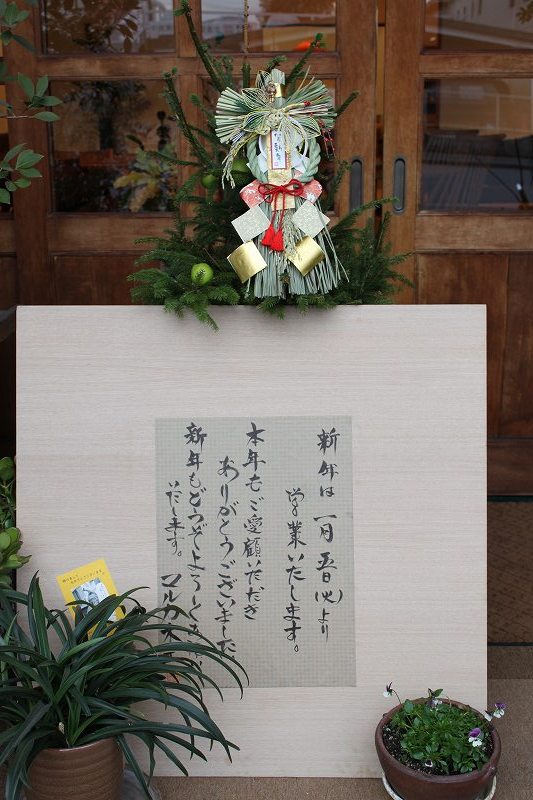 新年は 一月五日(火)より
営業いたします。
本年もご愛顧いただき
ありがとうございました
新年もどうぞよろしく
いたします。